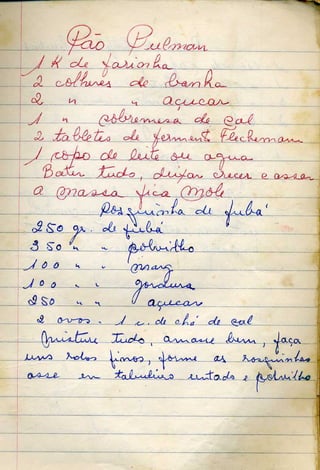 Pão Pulman
1 K de farinha
2 colheres de banha
2 " " açucar
1 " sobremesa de sal
2 tabletes de ferment. Flechemann
1 copo de leite ou agua
Bater tudo, deixar crecer e assar
a massa fica mole
Rosquinha de fubá
250 gr. de fubá
350 " " polvilho
100 " " marg
100 " " gordura
250 " " açucar
2 ovos. 1 c. de chá de sal
Misture tudo, amasse bem, faça
uns rolos finos, forme as rosquinhas
asse em tabuleiro untado e polvilho